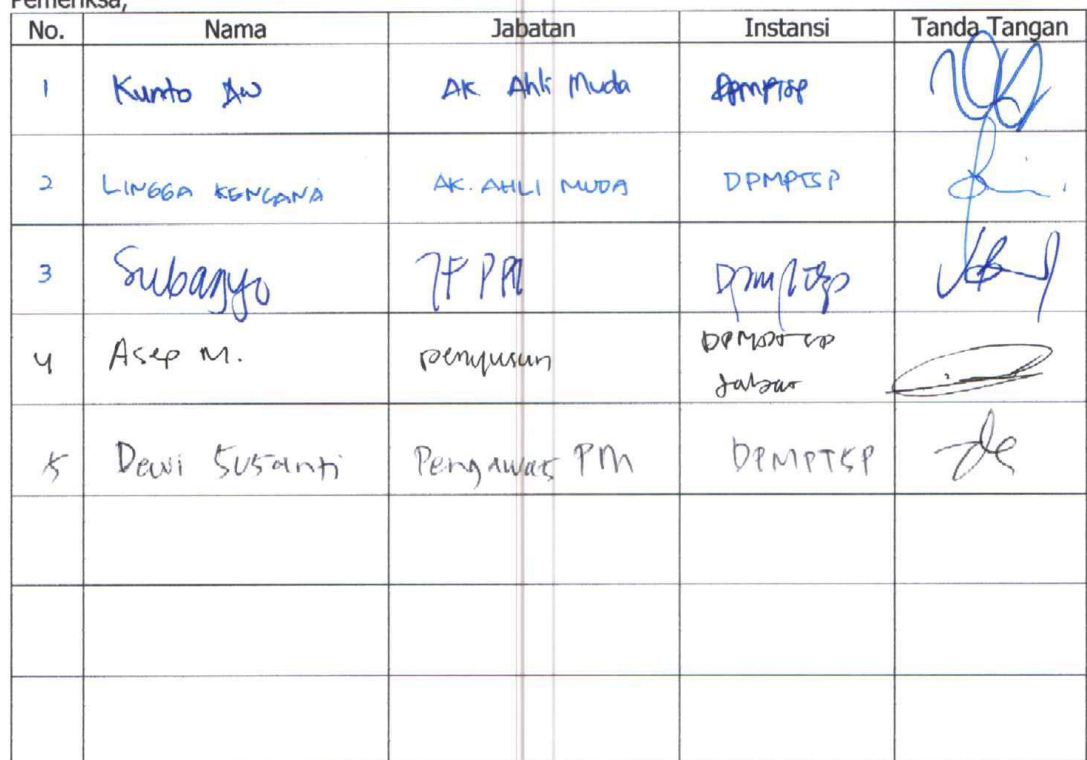 Pemeriksa,
No. Nama Jabatan Instansi Tanda Tangan
1 Kunto Aw AK Ahli Muda DPMPTSP
2 LINGGA KENCANA AK. AHLI MUDA DPMPTSP
3 Subagyo DPMPTSP
4 Asep M. penyusun DPMPTSP
Jabar
5 Dewi Susanti Pengawas PM DPMPTSP